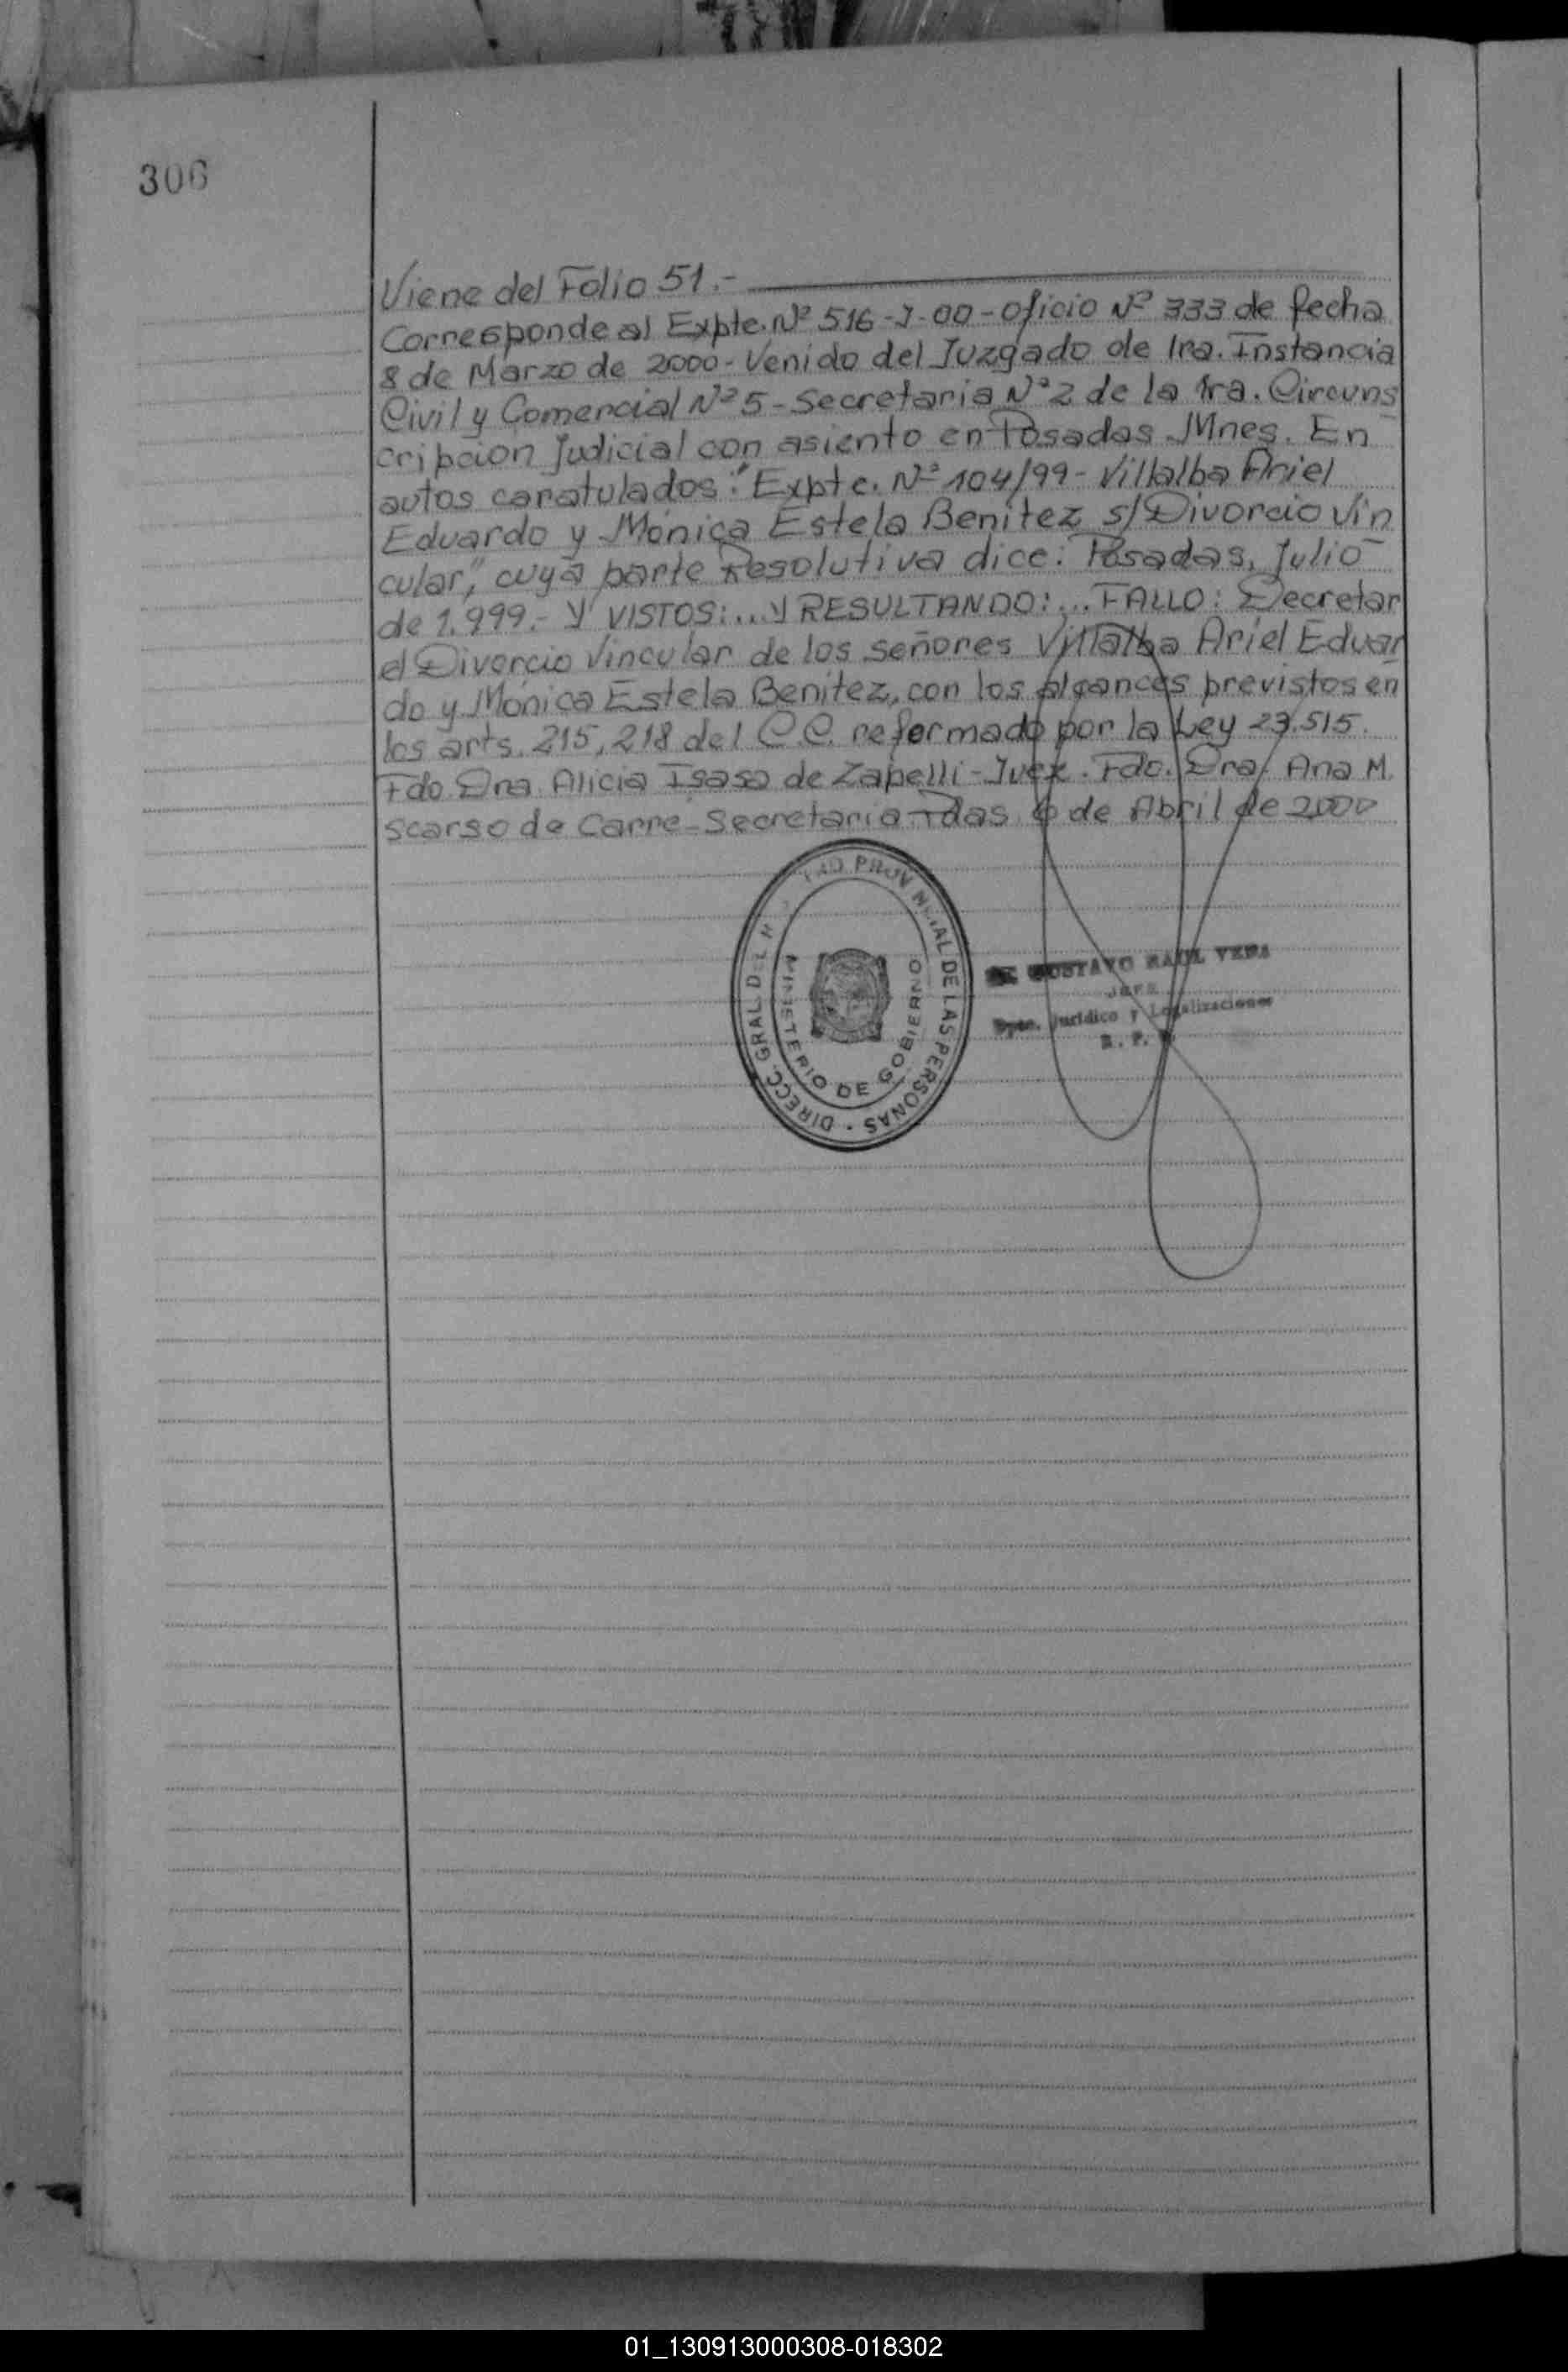 306
Viene del Folio 51.-
Corresponde al Expte. Nº 516-J-00-Oficio Nº 333 de fecha
8 de Marzo de 2000- Venido del Juzgado de 1ra. Instancia
Civil y Comercial Nº 5 - Secretaria Nº 2 de la 1ra. Circuns
cripcion Judicial con asiento en Posadas Mnes. En
autos caratulados: "Expte. Nº 104/99 - Villalba Ariel
Eduardo y Mónica Estela Benitez s/ Divorcio Vin
cular", cuya parte Resolutiva dice: Posadas, Julio
de 1.999.- Y VISTOS:... Y RESULTANDO:... FALLO: Decretar
el Divorcio Vincular de los señores Villalba Ariel Eduar
do y Mónica Estela Benitez, con los alcances previstos en
los arts. 215, 218 del C.C. reformado por la Ley 23.515.
Fdo. Dra. Alicia Isasa de Zapelli - Juez. Fdo. Dra. Ana M.
Scarso de Carre - Secretaria Pdas 6 de Abril de 2000
DIRECC. GRAL. DEL PROVINCIAL DE LAS PERSONAS
MINISTERIO DE GOBIERNO
GUSTAVO RAUL VERA
JEFE
Dpto. Juridico y Legalizaciones
R. P.
01_130913000308-018302